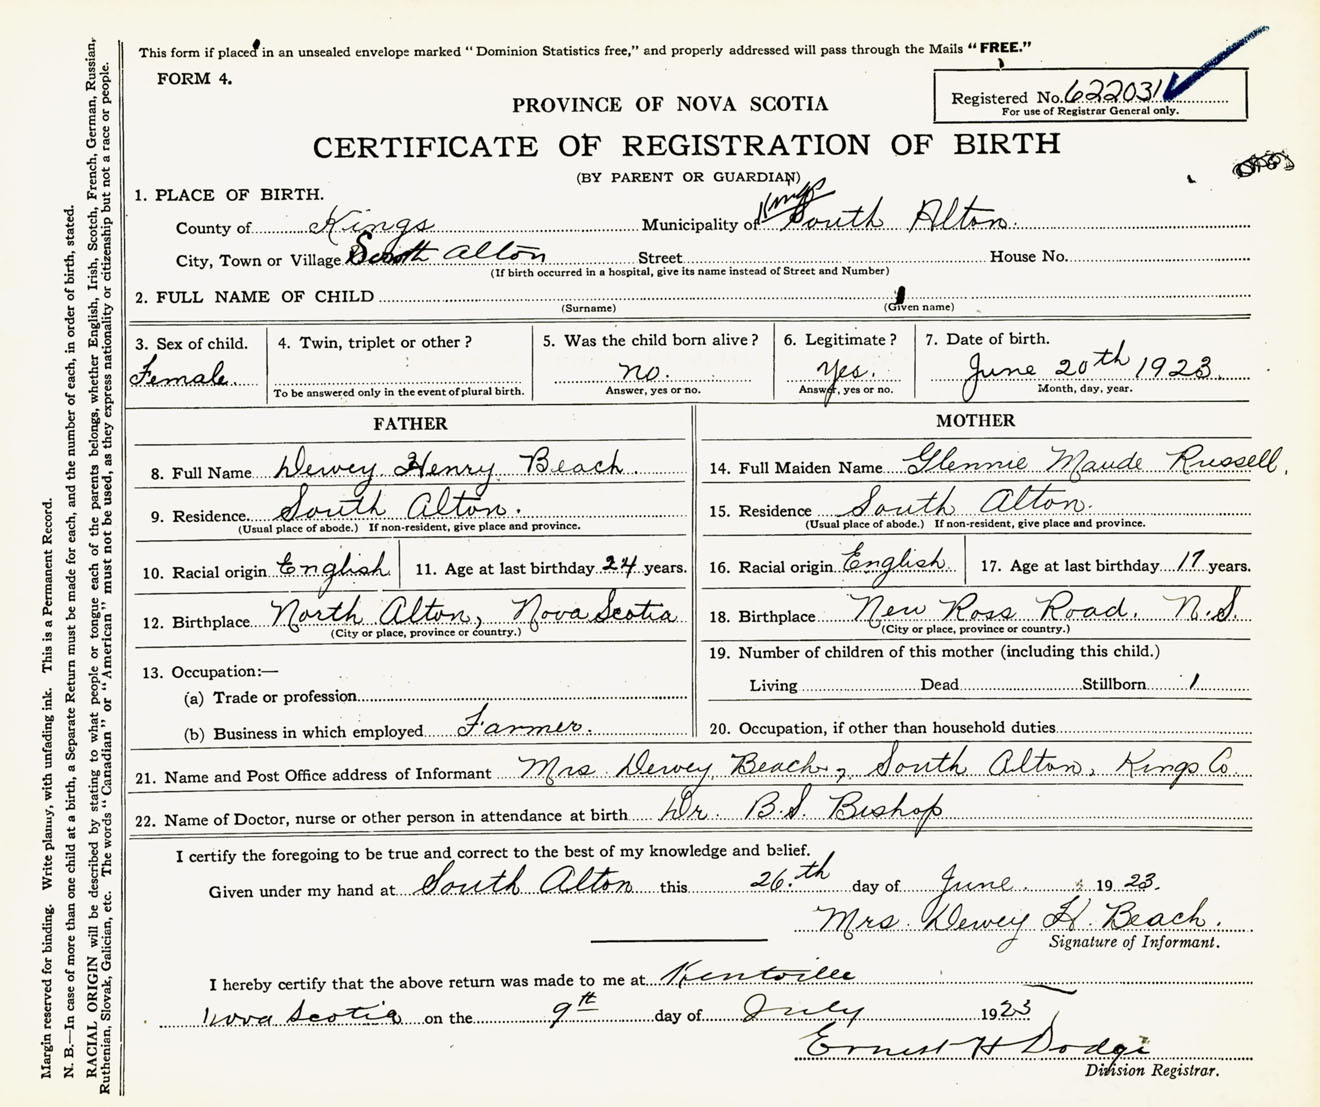 This form if placed in an unsealed envelope marked "Dominion Statistics free," and properly addressed will pass through the Mails "FREE."
FORM 4.
Registered No. 622031
For use of Registrar General only.
PROVINCE OF NOVA SCOTIA
CERTIFICATE OF REGISTRATION OF BIRTH
(BY PARENT OR GUARDIAN)
1. PLACE OF BIRTH.
Kings
County of Kings Municipality of South Alton.
City, Town or Village South Alton Street House No.
(If birth occurred in a hospital, give its name instead of Street and Number)
2. FULL NAME OF CHILD
(Surname) (Given name)
3. Sex of child. 4. Twin, triplet or other? 5. Was the child born alive? 6. Legitimate? 7. Date of birth.
Female. no. Yes. June 20th 1923.
To be answered only in the event of plural birth. Answer, yes or no. Answer, yes or no. Month, day, year.
FATHER MOTHER
8. Full Name Dewey Henry Beach. 14. Full Maiden Name Glennie Maude Russell,
9. Residence. South Alton. 15. Residence South Alton.
(Usual place of abode.) If non-resident, give place and province. (Usual place of abode.) If non-resident, give place and province.
10. Racial origin English 11. Age at last birthday 24 years. 16. Racial origin English 17. Age at last birthday 17 years.
12. Birthplace North Alton, Nova Scotia 18. Birthplace New Ross Road, N.S.
(City or place, province or country.) (City or place, province or country.)
13. Occupation:— 19. Number of children of this mother (including this child.)
(a) Trade or profession Living Dead Stillborn 1
(b) Business in which employed Farmer. 20. Occupation, if other than household duties
21. Name and Post Office address of Informant Mrs Dewey Beach, South Alton, Kings Co.
22. Name of Doctor, nurse or other person in attendance at birth Dr. B.S. Bishop
I certify the foregoing to be true and correct to the best of my knowledge and belief.
Given under my hand at South Alton this 26.th day of June. 1923.
Mrs. Dewey H. Beach.
Signature of Informant.
I hereby certify that the above return was made to me at Kentville
Nova Scotia on the 9th day of July 1923
Ernest H Dodge
Division Registrar.
Margin reserved for binding. Write plainly, with unfading ink. This is a Permanent Record.
N. B.—In case of more than one child at a birth, a Separate Return must be made for each, and the number of each, in order of birth, stated.
RACIAL ORIGIN will be described by stating to what people or tongue each of the parents belongs, whether English, Irish, Scotch, French, German, Russian,
Ruthenian, Slovak, Galician, etc. The words "Canadian" or "American" must not be used, as they express nationality or citizenship but not a race or people.